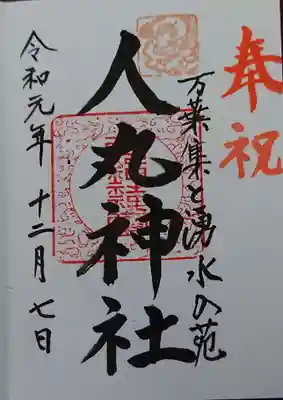 奉祝
万葉集と湧水の苑
人丸神社
令和元年 十二月 七日